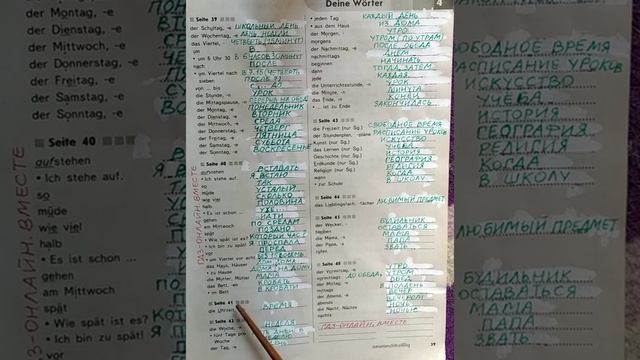 Deine Wörter
4
Seite 39
der Schultag, -e ШКОЛЬНЫЙ ДЕНЬ
der Wochentag, -e ДЕНЬ НЕДЕЛИ
das Viertel, - ЧЕТВЕРТЬ (15МИНУТ)
um 6 Uhr 30 В 6 ЧАСОВ 30МИНУТ
nach ПОСЛЕ
um Viertel nach В 7.15 (ЧЕТВЕРТЬ
sieben ПОСЛЕ 7)
von ... bis С... ДО
die Stunde, -n УРОК
die Mittagspause, -n ПЕРЕРЫВ НА ОБЕД
der Montag, -e ПОНЕДЕЛЬНИК
der Dienstag, -e ВТОРНИК
der Mittwoch, -e СРЕДА
der Donnerstag, -e ЧЕТВЕРГ
der Freitag, -e ПЯТНИЦА
der Samstag, -e СУББОТА
der Sonntag, -e ВОСКРЕСЕНЬЕ
Seite 40
aufstehen ВСТАВАТЬ
• Ich stehe auf. Я ВСТАЮ
so ТАК
müde УСТАЛЫЙ
wie viel СКОЛЬКО
halb ПОЛОВИНА
• Es ist schon ... УЖЕ
gehen ИДТИ
am Mittwoch ПО СРЕДАМ
spät ПОЗДНО
• Wie spät ist es? КОТОРЫЙ ЧАС?
• Ich bin zu spät! Я ПРОСПАЛ
vor ПЕРЕД
• um Viertel vor acht
das Haus, Häuser
• zu Hause
die Mutter, Mütter
das Bett, -en КРОВАТЬ
• im Bett В КРОВАТИ
Seite 41
die Uhrzeit, ВРЕМЯ
Seite 42
die Woche, -n НЕДЕЛЯ
• fünf Tage pro
Woche
der Tag, -e ДЕНЬ
ГДЗ-ОНЛАЙН.ВМЕСТЕ
• jeden Tag КАЖДЫЙ ДЕНЬ
• aus dem Haus ИЗ ДОМА
der Morgen, - УТРО
morgens УТРОМ (ПО УТРАМ)
der Nachmittag, -e ПОСЛЕ ОБЕДА
nachmittags ДНЕМ
beginnen НАЧИНАТЬ
dann ТОГДА, ЗАТЕМ
jede КАЖДАЯ
die Unterrichtsstunde, -n УРОК
die Minute, -n МИНУТА
das Ende, -n КОНЕЦ
• ... ist zu Ende ЗАКОНЧИЛАСЬ
Seite 43
die Freizeit (nur Sg.) СВОБОДНОЕ ВРЕМЯ
der Stundenplan, -pläne РАСПИСАНИЕ УРОКОВ
Kunst (nur Sg.) ИСКУССТВО
das Lernen (nur Sg.) УЧЕБА
Geschichte (nur Sg.) ИСТОРИЯ
Erdkunde (nur Sg.) ГЕОГРАФИЯ
Religion (nur Sg.) РЕЛИГИЯ
wann КОГДА
• zur Schule В ШКОЛУ
Seite 44
das Lieblingsfach, -fächer ЛЮБИМЫЙ ПРЕДМЕТ
Seite 45
der Wecker, - БУДИЛЬНИК
bleiben ОСТАВАТЬСЯ
die Mama, -s МАМА
der Papa, -s ПАПА
rufen ЗВАТЬ
der Vormittag, -e УТРО
vormittags ДО ОБЕДА, УТРОМ
der Mittag, -e ОБЕД
mittags В ПОЛДЕНЬ
der Abend, -e ВЕЧЕР
abends ВЕЧЕРОМ
die Nacht, Nächte НОЧЬ
ГДЗ-ОНЛАЙН.ВМЕСТЕ
39
der Montag, -e
der Dienstag, -e
der Mittwoch, -e
der Donnerstag, -e
der Freitag, -e
der Samstag, -e
der Sonntag, -e
Seite 40
aufstehen
• Ich stehe auf.
so
müde
wie viel
halb
• Es ist schon ...
gehen
am Mittwoch
spät
• Wie spät ist es?
• Ich bin zu spät!
vor
ГДЗ-ОНЛАЙН.ВМЕСТЕ
СВОБОДНОЕ ВРЕМЯ
РАСПИСАНИЕ УРОКОВ
ИСКУССТВО
УЧЕБА
ИСТОРИЯ
ГЕОГРАФИЯ
РЕЛИГИЯ
КОГДА
В ШКОЛУ
ЛЮБИМЫЙ ПРЕДМЕТ
БУДИЛЬНИК
ОСТАВАТЬСЯ
МАМА
ПАПА
ЗВАТЬ